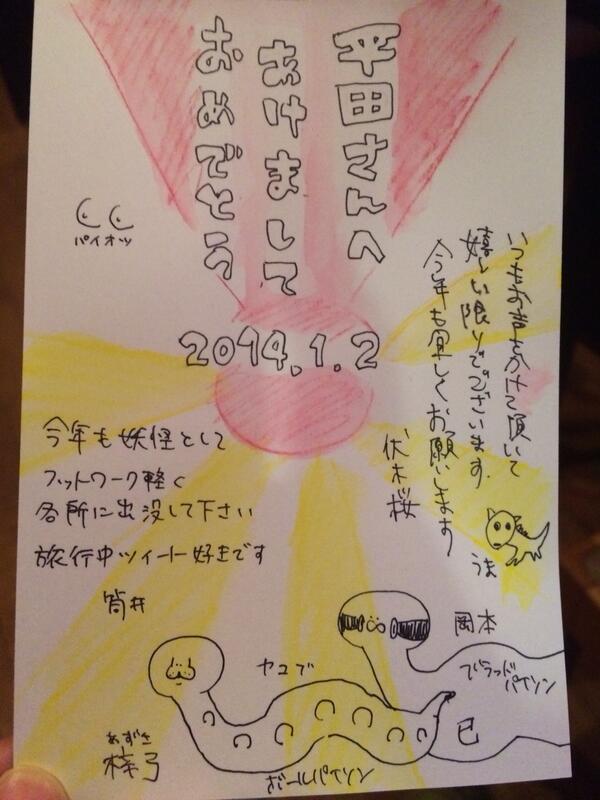 平田さんへ
あけまして
おめでとう
2014.1.2
パイオツ
いつもお声をかけて頂いて
嬉しい限りでございます。
今年も宜しくお願いします
伏木桜
うま
今年も妖怪として
フットワーク軽く
各所に出没して下さい
旅行中ツイート好きです
筒井
岡本
ブラッドパイソン
巳
ヤユブ
ボールパイソン
あずさ
梓弓